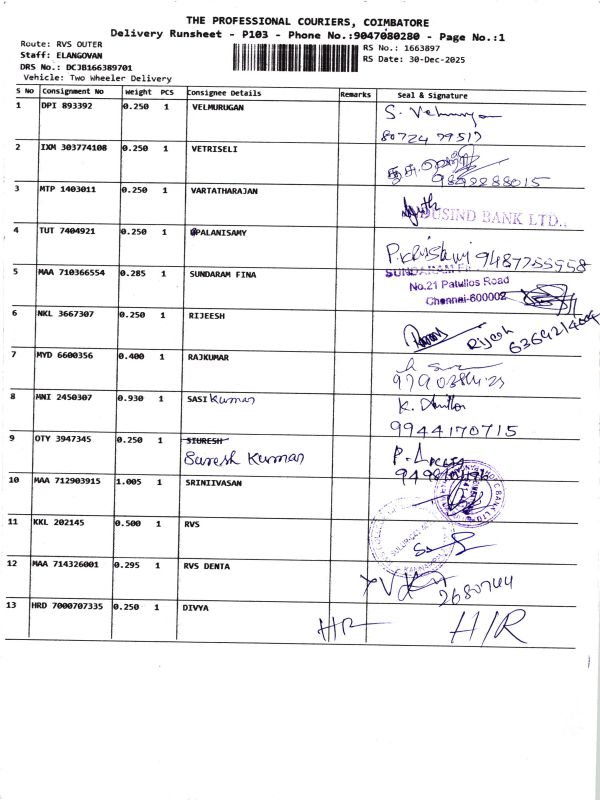 THE PROFESSIONAL COURIERS, COIMBATORE
Delivery Runsheet - P103 - Phone No.:9047080280 - Page No.:1
Route: RVS OUTER
Staff: ELANGOVAN
DRS No.: DCJB166389701
Vehicle: Two Wheeler Delivery
RS No.: 1663897
RS Date: 30-Dec-2025
S No Consignment No Weight PCS Consignee Details Remarks Seal & Signature
1 DPI 893392 0.250 1 VELMURUGAN
80724 79517
2 IXM 303774108 0.250 1 VETRISELI
9842288015
3 MTP 1403011 0.250 1 VARTATHARAJAN
DUSIND BANK LTD.,
4 TUT 7404921 0.250 1 PALANISAMY
9487755958
5 MAA 710366554 0.285 1 SUNDARAM FINA
SUNDARAM FI
No.21 Patullos Road
Chennai-600002
6 NKL 3667307 0.250 1 RIJEESH
Rijeesh
7 MYD 6600356 0.400 1 RAJKUMAR
8 MNI 2450307 0.930 1 SASI Kumar
9944170715
9 OTY 3947345 0.250 1 SIURESH
Suresh Kumar
10 MAA 712903915 1.005 1 SRINIIVASAN
11 KKL 202145 0.500 1 RVS
12 MAA 714326001 0.295 1 RVS DENTA
2680744
13 HRD 7000707335 0.250 1 DIVYA
H/R H/R